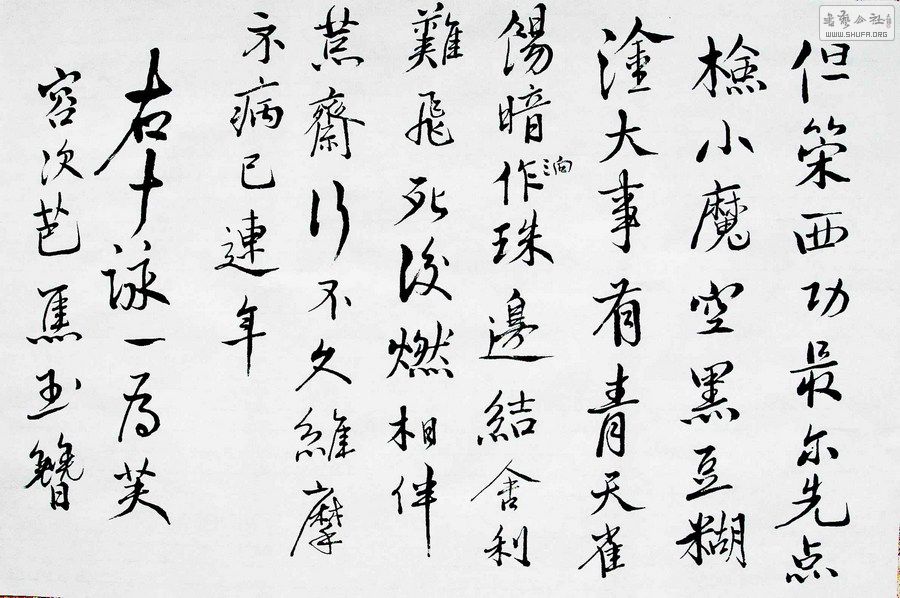 但策西功最尔先点
檢小魔空黑豆糊
塗大事有青天雀
餳暗作珠邊結舍利
難飛死後燃相伴
蕉齋行不久維摩
示病已連年
右十詠一為芙
容次芭蕉玉簪
书艺公社
WWW.SHUFA.ORG